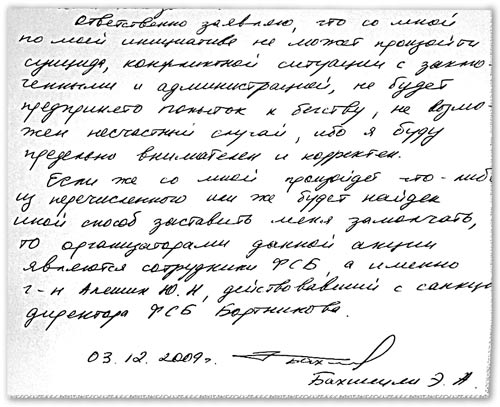 Ответственно заявляю, что со мной
по моей инициативе не может произойти
суицида, конфликтной ситуации с заклю-
ченными и администрацией, не будет
предпринято попыток к бегству, не возмо-
жен несчастный случай, ибо я буду
предельно внимателен и корректен.
Если же со мной произойдет что-либо
из перечисленного или же будет найден
иной способ заставить меня замолчать,
то организаторами данной акции
являются сотрудники ФСБ, а именно
г-н Алешин Ю.Н, действовавший с санкции
директора ФСБ Бортникова.
03.12.2009г.